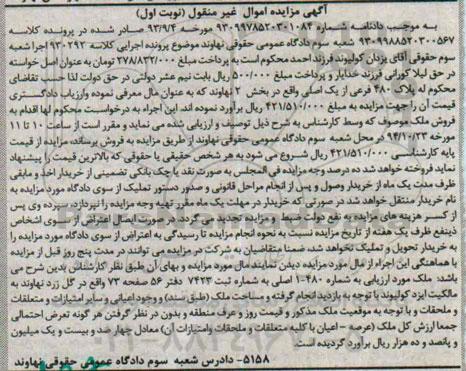 آگهی مزایده اموال غیر منقول (نوبت اول)
به موجب دادنامه شماره ۹۳۰۹۹۷۸۵۲۰۳۰۱۰۸۴ مورخه ۹۳/۹/۴ صادر شده در پرونده کلاسه
۹۳۰۹۹۸۸۵۲۰۳۰۰۵۶۷ شعبه سوم دادگاه عمومی حقوقی نهاوند موضوع پرونده اجرایی کلاسه ۹۳۰۲۹۲ اجرا شعبه
سوم حقوقی آقای یزدان کولیوند فرزند احمد محکوم است به پرداخت مبلغ ۲۷۸/۸۳۲/۰۰۰ تومان به عنوان اصل خواسته
در حق لیلا کورانی فرزند خدایار و پرداخت مبلغ ۵۰۰/۰۰۰ ریال بابت نیم عشر دولتی در حق دولت لذا حسب تقاضای
محکوم له پلاک ۴۸۰ فرعی از یک اصلی واقع در بخش ۲ نهاوند که به عنوان مال معرفی نموده وارزیاب دادگستری
قیمت آن را جهت مزایده به مبلغ ۴۲۱/۵۱۰/۰۰۰ ریال برآورد نموده اند. این اجراء به درخواست محکوم لها اقدام به
فروش ملک موصوف که وسط کارشناس به شرح ذیل توصیف و ارزیابی شده می نماید و مقرر است از ساعت ۱۰ تا ۱۱
مورخه ۹۴/۱۰/۲۳ در محل شعبه سوم دادگاه عمومی حقوقی نهاوند از طریق مزایده به فروش برساند، مزایده از قیمت
پایه کارشناسی ۴۲۱/۵۱۰/۰۰۰ ریال شروع می شود به هر شخص حقیقی یا حقوقی که بالاترین قیمت را پیشنهاد
نماید فروخته خواهد شد ده درصد وجه مزایده فی المجلس به صورت نقد یا چک بانکی تضمینی از خریدار اخذ و مابقی
ظرف مدت یک ماه از خریدار وصول و پس از انجام مراحل قانونی و صدور دستور تملیک از سوی دادگاه مورد مزایده به
نام خریدار منتقل خواهد شد در صورتی که خریدار در مهلت یک ماه مقرر تهیه وجه مزایده را نپردازد، سپرده وی پس
از کسر هزینه های مزایده به نفع دولت ضبط و مزایده تجدید می گردد در صورت ایصال اعتراض از سوی اشخاص
ذینفع ظرف یک هفته از تاریخ مزایده نسبت به نحوه انجام مزایده تا رسیدگی به اعتراض از سوی دادگاه مورد مزایده را
به خریدار تحویل و تملیک نخواهد شد، ضمنا متقاضیان به شرکت در مزایده می توانند در مدت پنج روز قبل از مزایده
با هماهنگی این اجراء از مال مورد مزایده دیدن نمایند مال مورد مزایده و بهای آن طبق نظر کارشناس بدین شرح می
باشد: ملک مورد ارزیابی به شماره ۴۸۰-۱ اصلی به شماره ثبت ۷۴۲۳ دفتر ۵۶ صفحه ۷۳ واقع در گل زرد نهاوند به
مالکیت ایزد کولیوند با توجه به بازدید انجام گرفته و مساحت ملک (طبق سند) و وجود اعیانی و سایر امتیازات و متعلقات
و ملحقات و با توجه به موقعیت ملک مذکور و قیمت روز و عرف منطقه و بدون در نظر گرفتن هر گونه تعرض احتمالی
جمعا ارزش کل ملک (عرصه - اعیان با کلیه متعلقات و ملحقات وامتیازات آن) معادل چهار صد و بیست و یک میلیون
و پانصد و ده هزار ریال برآورد گردیده است.
۵۱۵۸- دادرس شعبه سوم دادگاه عمومی حقوقی نهاوند